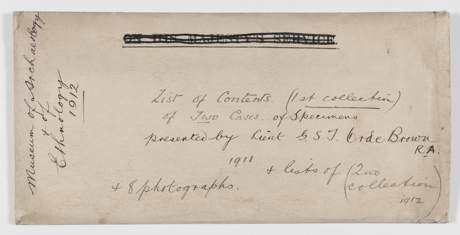 ON HIS MAJESTY'S SERVICE.
Museum of Archaeology
& of
Ethnology
1912
List of Contents. (1st collection)
of Two Cases of Specimens
presented by Lieut G. S. J. Orde Brown
R.A.
1911
+ lists of (2nd
collection)
1912
+ 8 photographs.